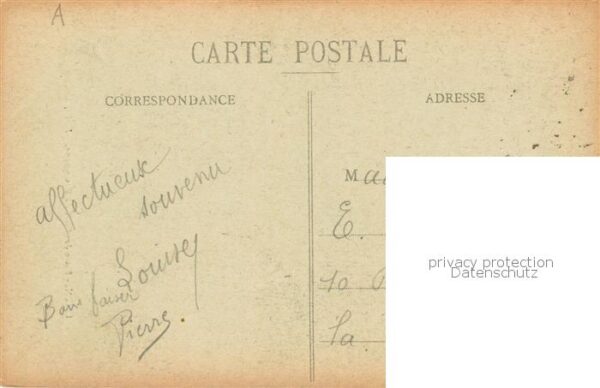 A
CARTE POSTALE
CORRESPONDANCE
affectueux
souvenir
Louise
Bons baiser
Pierre.
ADRESSE
Ma
E.
10
La
privacy protection
Datenschutz